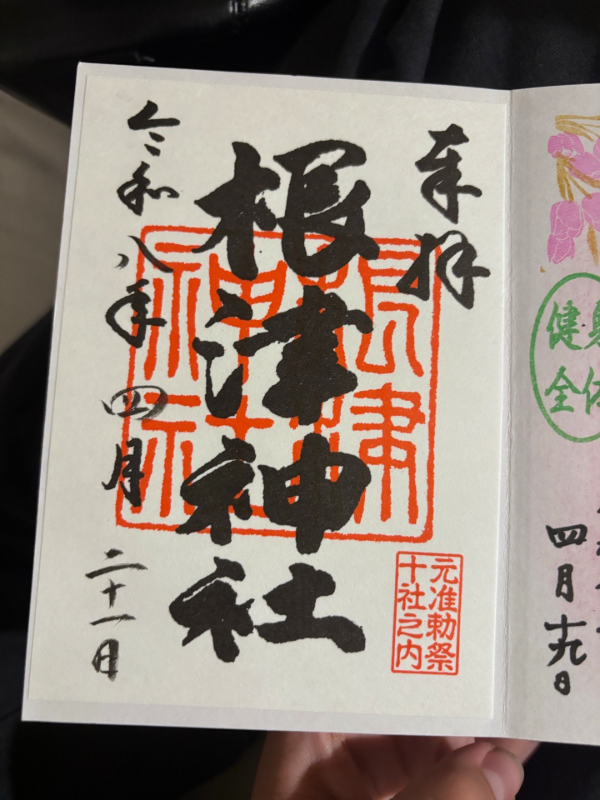 奉拝
根津神社
令和八年四月二十一日
根津
神社
元准勅祭
十社之内
健身
全体
四月十九日